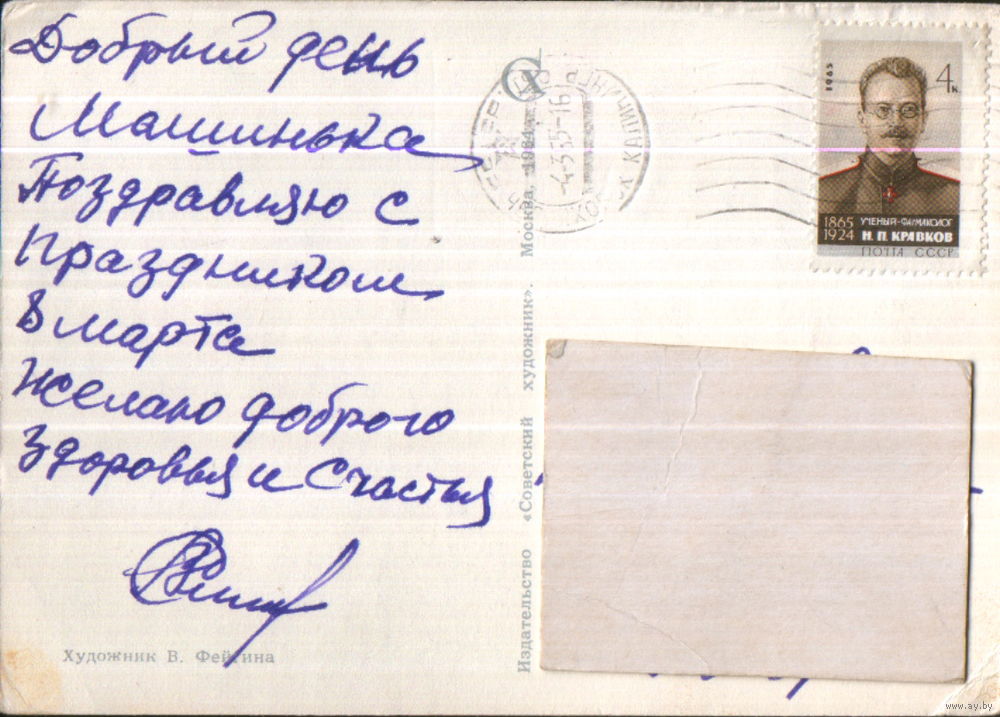 Добрый день
Машинька,
Поздравляю с
Праздником
8 марта
Желаю доброго
Здоровья и Счастья
Художник В. Фейгина
Издательство «Советский художник». Москва, 1964
СХ
1965
4к.
1865
1924
УЧЕНЫЙ-ФАРМАКОЛОГ
Н. П. КРАВКОВ
ПОЧТА СССР
www.ay.by